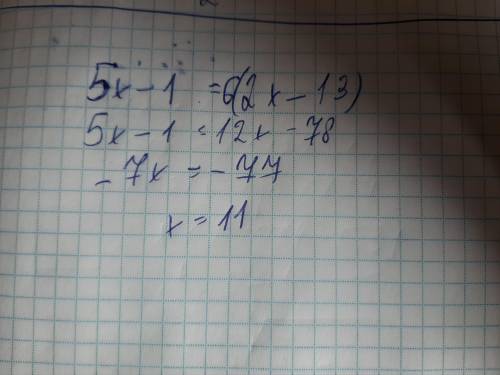 5x-1 =6(2x-13)
5x-1=12x-78
-7x=-77
x=11